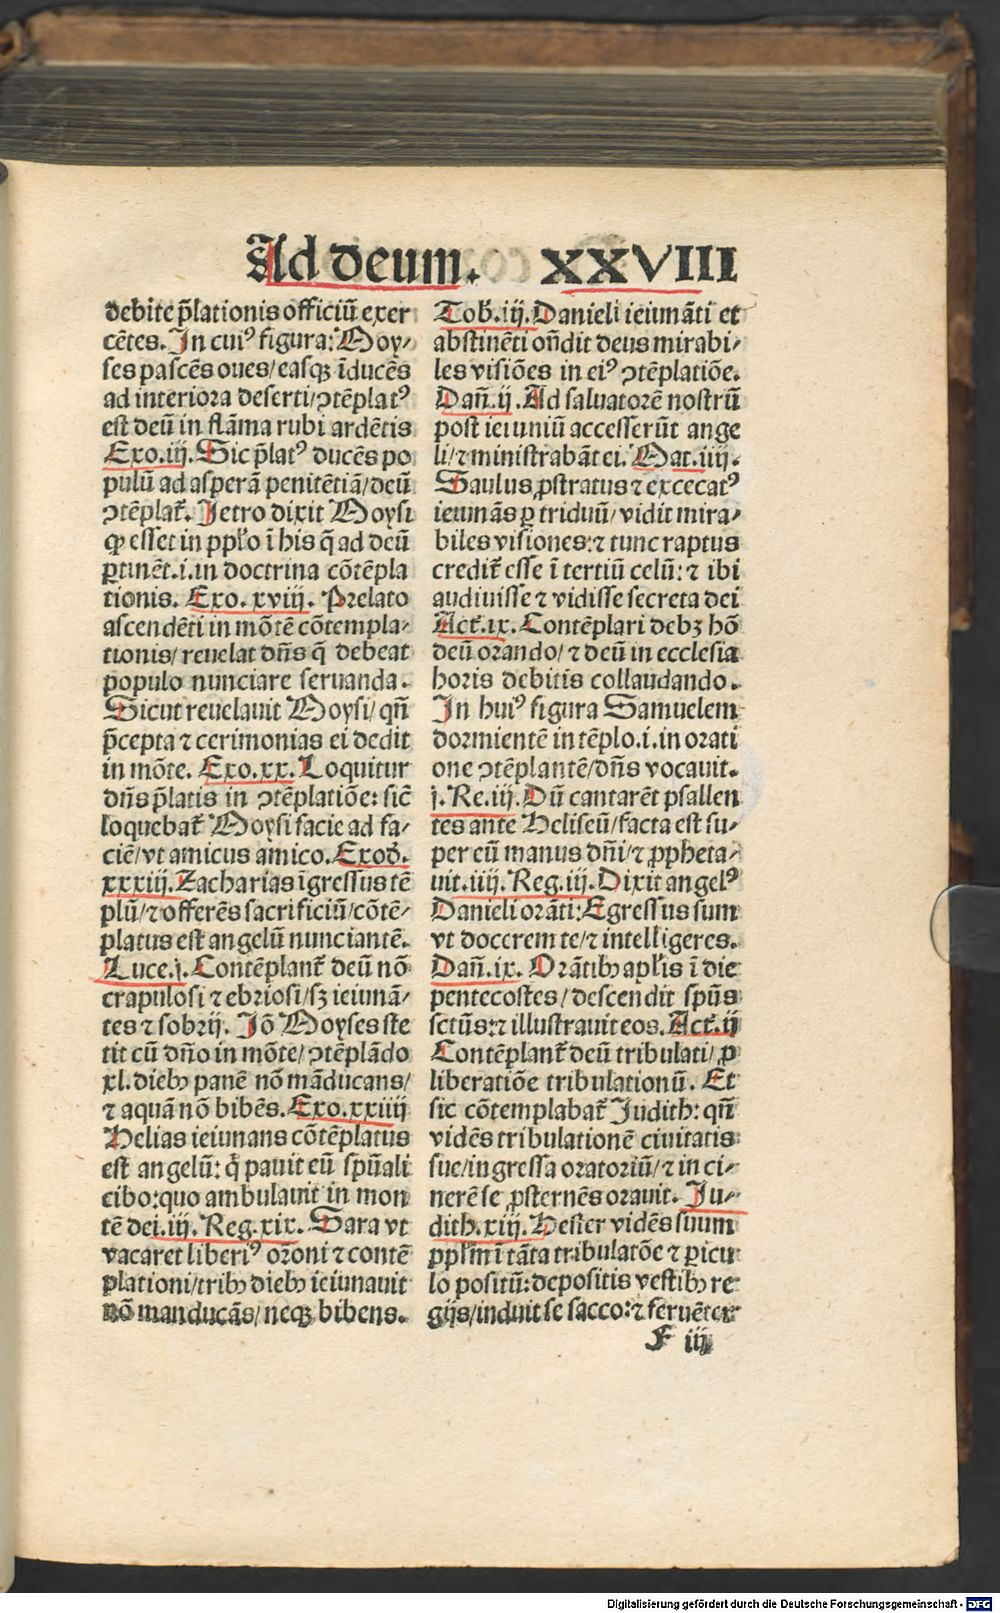 Ad deum. XXVIII
debite p̄lationis officiū exer
cētes. In cuiꝰ figura: Moy⸗
ses pascēs oues/ easqꝫ īducēs
ad interiora deserti/ ↄtēplatꝰ
est deū in flāma rubi ardētis
Exo.iij. Sic p̄latꝰ ducēs po
pulū ad asperā penitētiā/ deū
ↄtēplat̃. Jetro dixit Moysi
ꝙ esset in ppl̓o ī his q̄ ad deū
ꝑtinēt.i.in doctrina cōtēpla
tionis. Exo.xviij. Prelato
ascendēti in mōtē cōtempla⸗
tionis/ reuelat dn̄s q̄ debeat
populo nunciare seruanda.
Sicut reuelauit Moysi/ qn̄
p̄cepta ⁊ cerimonias ei dedit
in mōte. Exo.xx. Loquitur
dn̄s p̄latis in ↄtēplatiōe: sic̄
loquebat̃ Moysi facie ad fa⸗
ciē/ vt amicus amico. Exod̓.
xxxiij. Zacharias īgressus tē
plū/ ⁊ offerēs sacrificiū/ cōtē⸗
platus est angelū nunciantē.
Luce.j. Contēplant̃ deū nō
crapulosi ⁊ ebriosi/ sꝫ ieiunā⸗
tes ⁊ sobrij. Jō Moyses ste
tit cū dn̄o in mōte/ ↄtēplādo
xl. diebꝫ panē nō māducans/
⁊ aquā nō bibēs. Exo.xxiiij
Helias ieiunans cōtēplatus
est angelū: q̓ pauit eū spūali
cibo: quo ambulauit in mon
tē dei.iij. Reg.xix. Sara vt
vacaret liberiꝰ or̄oni ⁊ contē
plationi/ tribꝫ diebꝫ ieiunauit
nō manducās/ neqꝫ bibens.
Tob̓.iij. Danieli ieiunāti et
abstinēti on̄dit deus mirabi⸗
les visiōes in eiꝰ ↄtēplatiōe.
Dan̄.ij. Ad saluatorē nostrū
post ieiuniū accesserūt ange
li/ ⁊ ministrabāt ei. Mat.iiij.
Saulus ꝓstratus ⁊ excecatꝰ
ieiunās ꝑ triduū/ vidit mira⸗
biles visiones: ⁊ tunc raptus
credit̃ esse ī tertiū celū: ⁊ ibi
audiuisse ⁊ vidisse secreta dei
Act̃.ix. Contēplari debꝫ hō
deū orando/ ⁊ deū in ecclesia
horis debitis collaudando.
In huiꝰ figura Samuelem
dormientē in tēplo.i.in orati
one ↄtēplantē/ dn̄s vocauit.
j. Re.iij. Dū cantarēt psallen
tes ante Heliseū/ facta est su⸗
per eū manus dn̄i/ ⁊ ꝓpheta⸗
uit.iiij. Reg.iij. Dixit angelꝰ
Danieli orāti: Egressus sum
vt docerem te/ ⁊ intelligeres.
Dan̄.ix. Orātibꝫ apl̓is ī die
pentecostes/ descendit spūs
sctūs: ⁊ illustrauit eos. Act̃.ij
Contēplant̃ deū tribulati/ ꝓ
liberatiōe tribulationū. Et
sic cōtemplabat̃ Judith: qn̄
vidēs tribulationē ciuitatis
sue/ ingressa oratoriū/ ⁊ in ci⸗
nerē se ꝓsternēs orauit. Ju⸗
dith.xiij. Hester vidēs suum
ppl̓m ī tāta tribulatōe ⁊ ꝑicu
lo positū: depositis vestibꝫ re
gijs/ induit se sacco: ⁊ feruēter
F iij
Digitalisierung gefördert durch die Deutsche Forschungsgemeinschaft - DFG